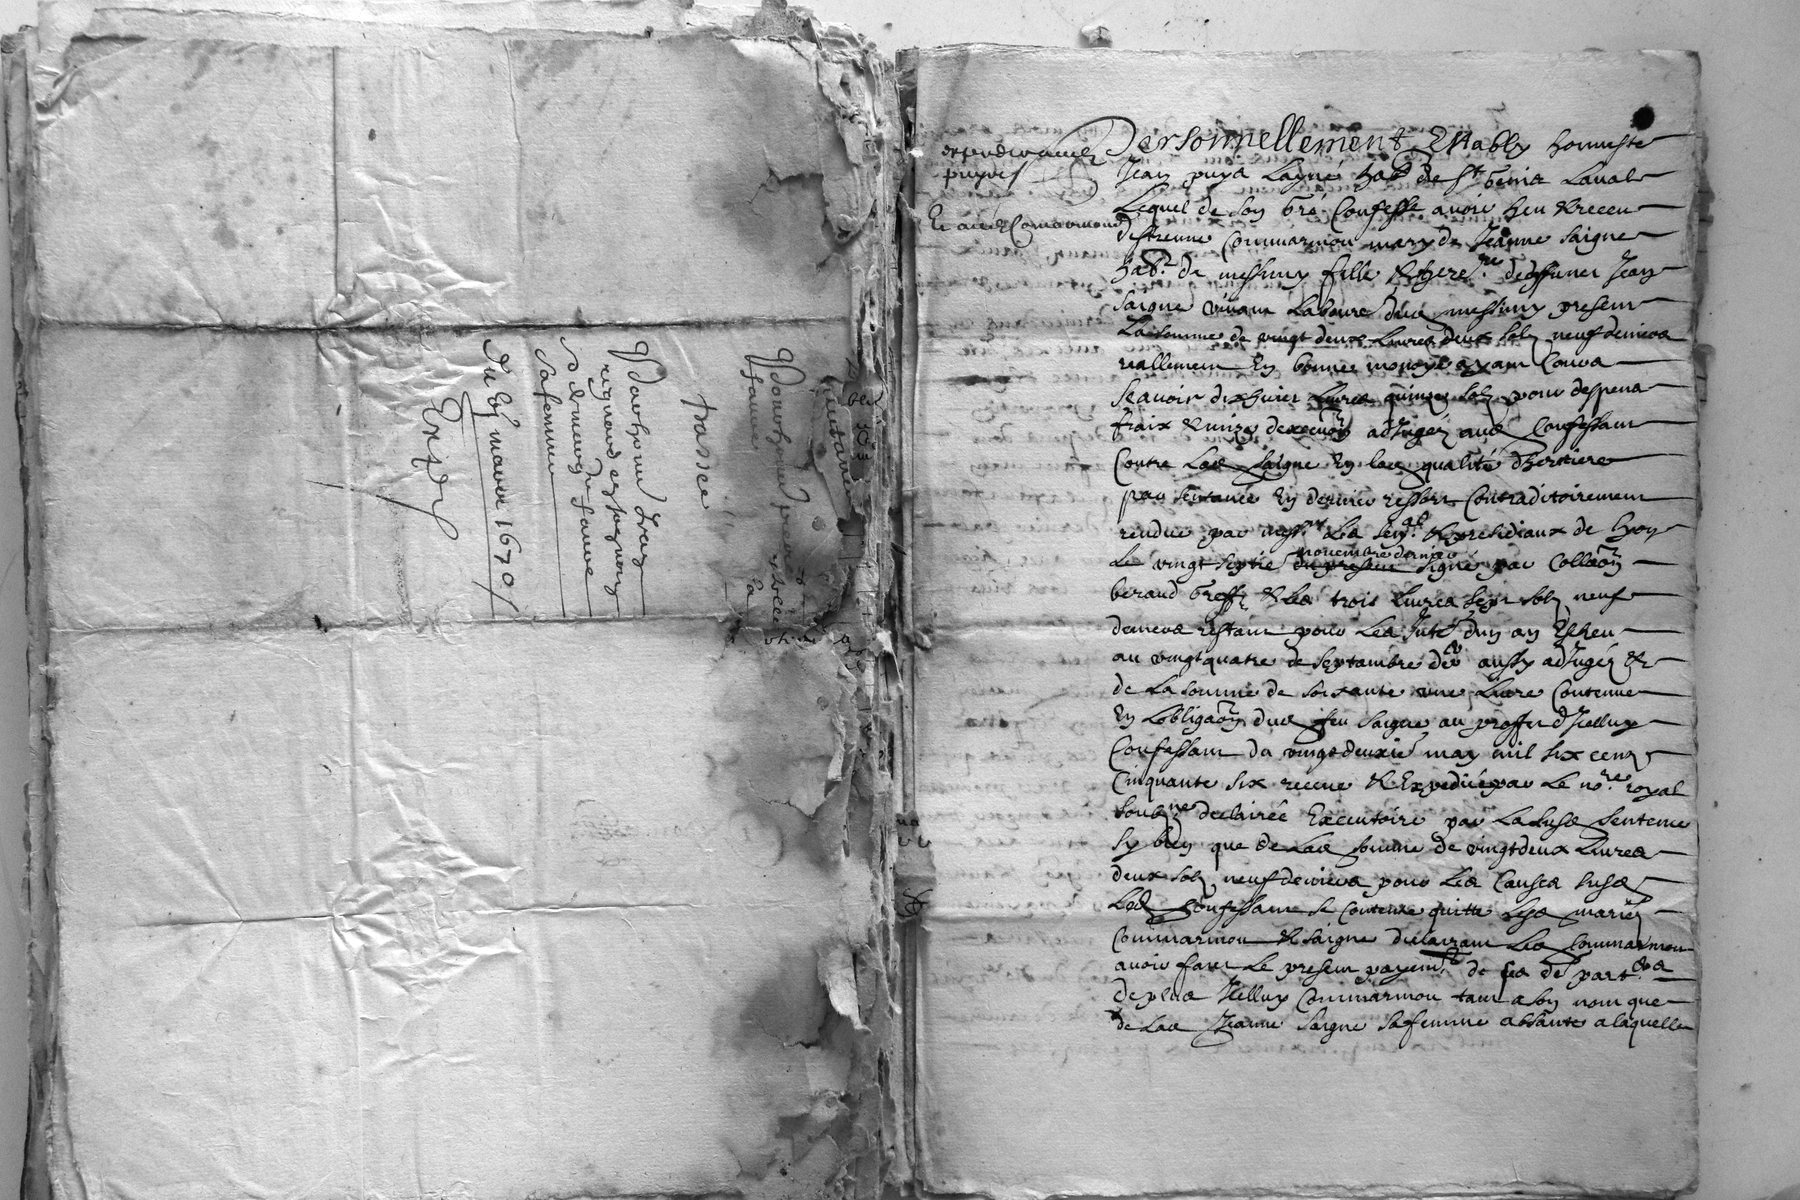 passee
du 6e mars 1670
sa femme
Expedie aud
puydes
Et aud Commarmond
Personnellement Estably honneste
Jean puys Layné habt de St Genis Laval
Lequel de son Gré Confesse avoir heu & receu
destienne Commarmon mary de Jeanne Saigne
habt de messimy fille & here.re de deffunct Jean
Saigne vivant Laboure dud messimy present
La somme de vingt deux Livres deux solz neuf deniers
reallement En bonne monoye ayant Cours
Scavoir dixhuict Livres quinze solz pour despens
fraix & mize dexecuõn adjugez aud Confessant
Contre Lad Saigne En lad qualité dheritiere
par sentance En dernier ressort Contraditoirement
rendue par mess.rs Les sen.al & presidiaux de Lyon
Le vingt septie novembre dernier signé par Collaõn
beraud Greff.r & Les trois Livres sept solz neuf
deniers restant pour Les Intz dun an Escheu
au vingtquatre de septambre der aussy adjugez &
de La somme de soixante une Livre Contenue
En Lobligaõn dud feu Saigne au proffit dIcelluy
Confessant du vingtdeuxie may mil six cent
Cinquante six receue & Expediée par Le no.re royal
soubz.ne declairée Executoire par La susd sentence
Sy bien que de Lad somme de vingtdeux Livres
deux solz neuf deniers pour Les Causes susd
Led Confessant se Contente quitte Lesd mariez
Commarmon & Saigne declairant Led Commarmon
avoir faict Le present payemt de ses den.
de plus Icelluy Commarmon tant a son nom que
de Lad Jeanne Saigne sa femme absante a laquelle